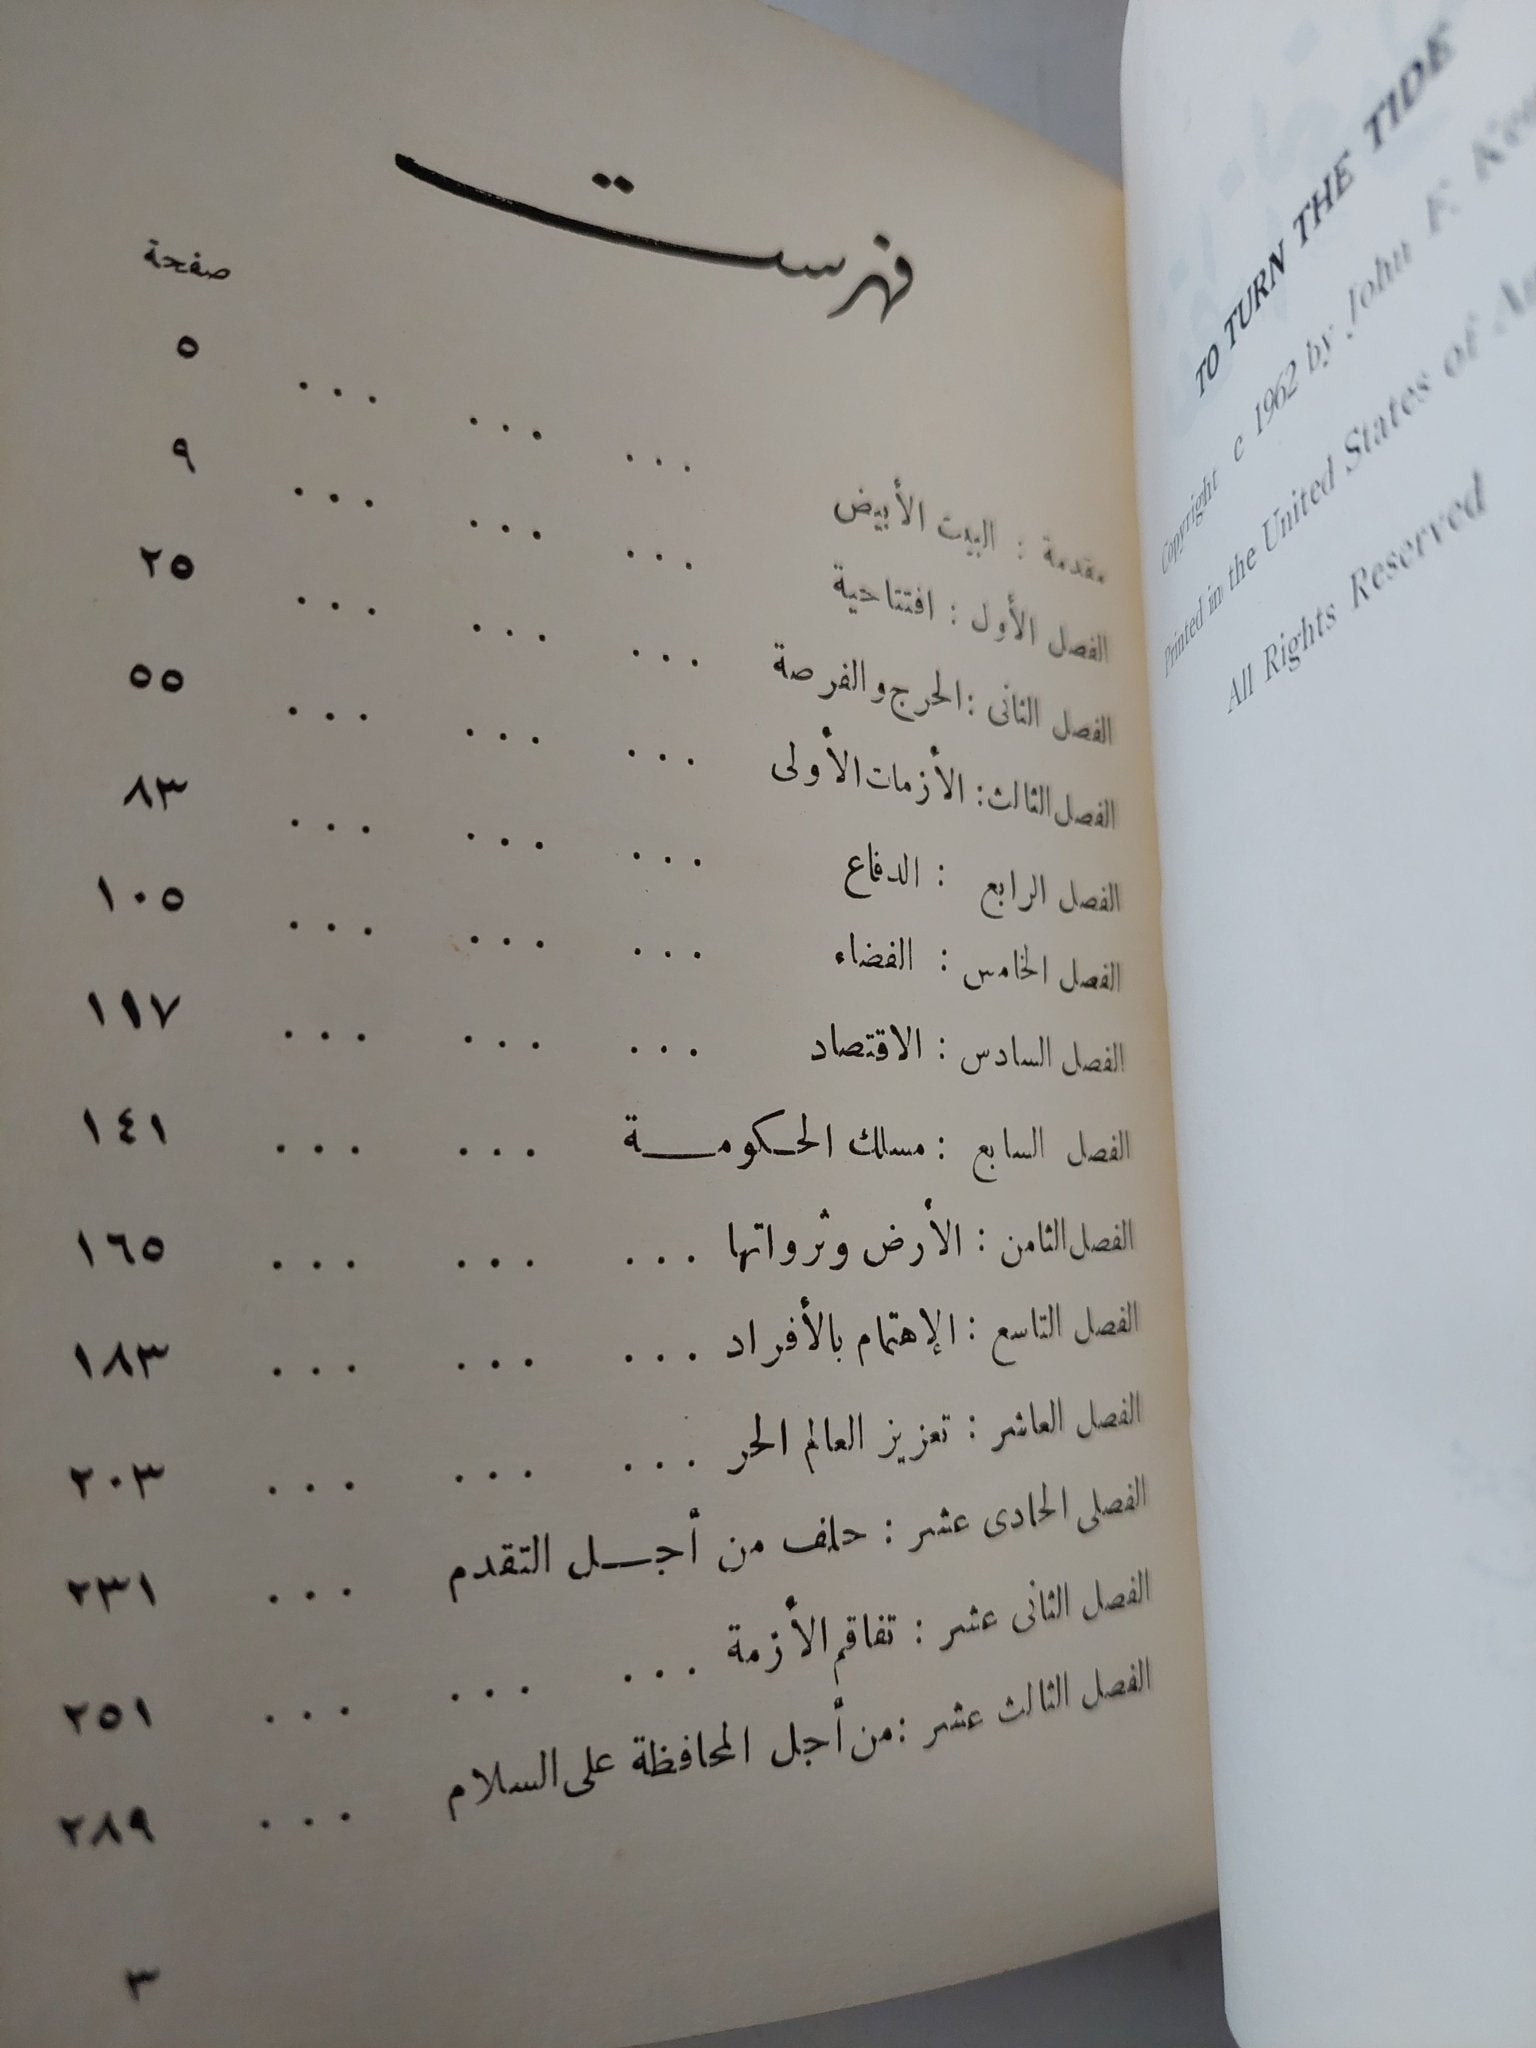 فهرست
صفحة
مقدمة : البيت الأبيض ... ... ... ٥
الفصل الأول : افتتاحية ... ... ... ٩
الفصل الثانى : الحرج والفرصة ... ... ... ٢٥
الفصل الثالث : الأزمات الأولى ... ... ... ٥٥
الفصل الرابع : الدفاع ... ... ... ٨٣
الفصل الخامس : الفضاء ... ... ... ١٠٥
الفصل السادس : الاقتصاد ... ... ... ١١٧
الفصل السابع : مسلك الحكومة ... ... ١٤١
الفصل الثامن : الأرض وثرواتها ... ... ... ١٦٥
الفصل التاسع : الإهتمام بالأفراد ... ... ... ١٨٣
الفصل العاشر : تعزيز العالم الحر ... ... ... ٢٠٣
الفصلى الحادى عشر : حلف من أجل التقدم ... ٢٣١
الفصل الثانى عشر : تفاقم الأزمة ... ... ... ٢٥١
الفصل الثالث عشر : من أجل المحافظة على السلام ... ٢٨٩
٣
TO TURN THE TIDE
Copyright c 1962 by John F.
Printed in the United States of
All Rights Reserved